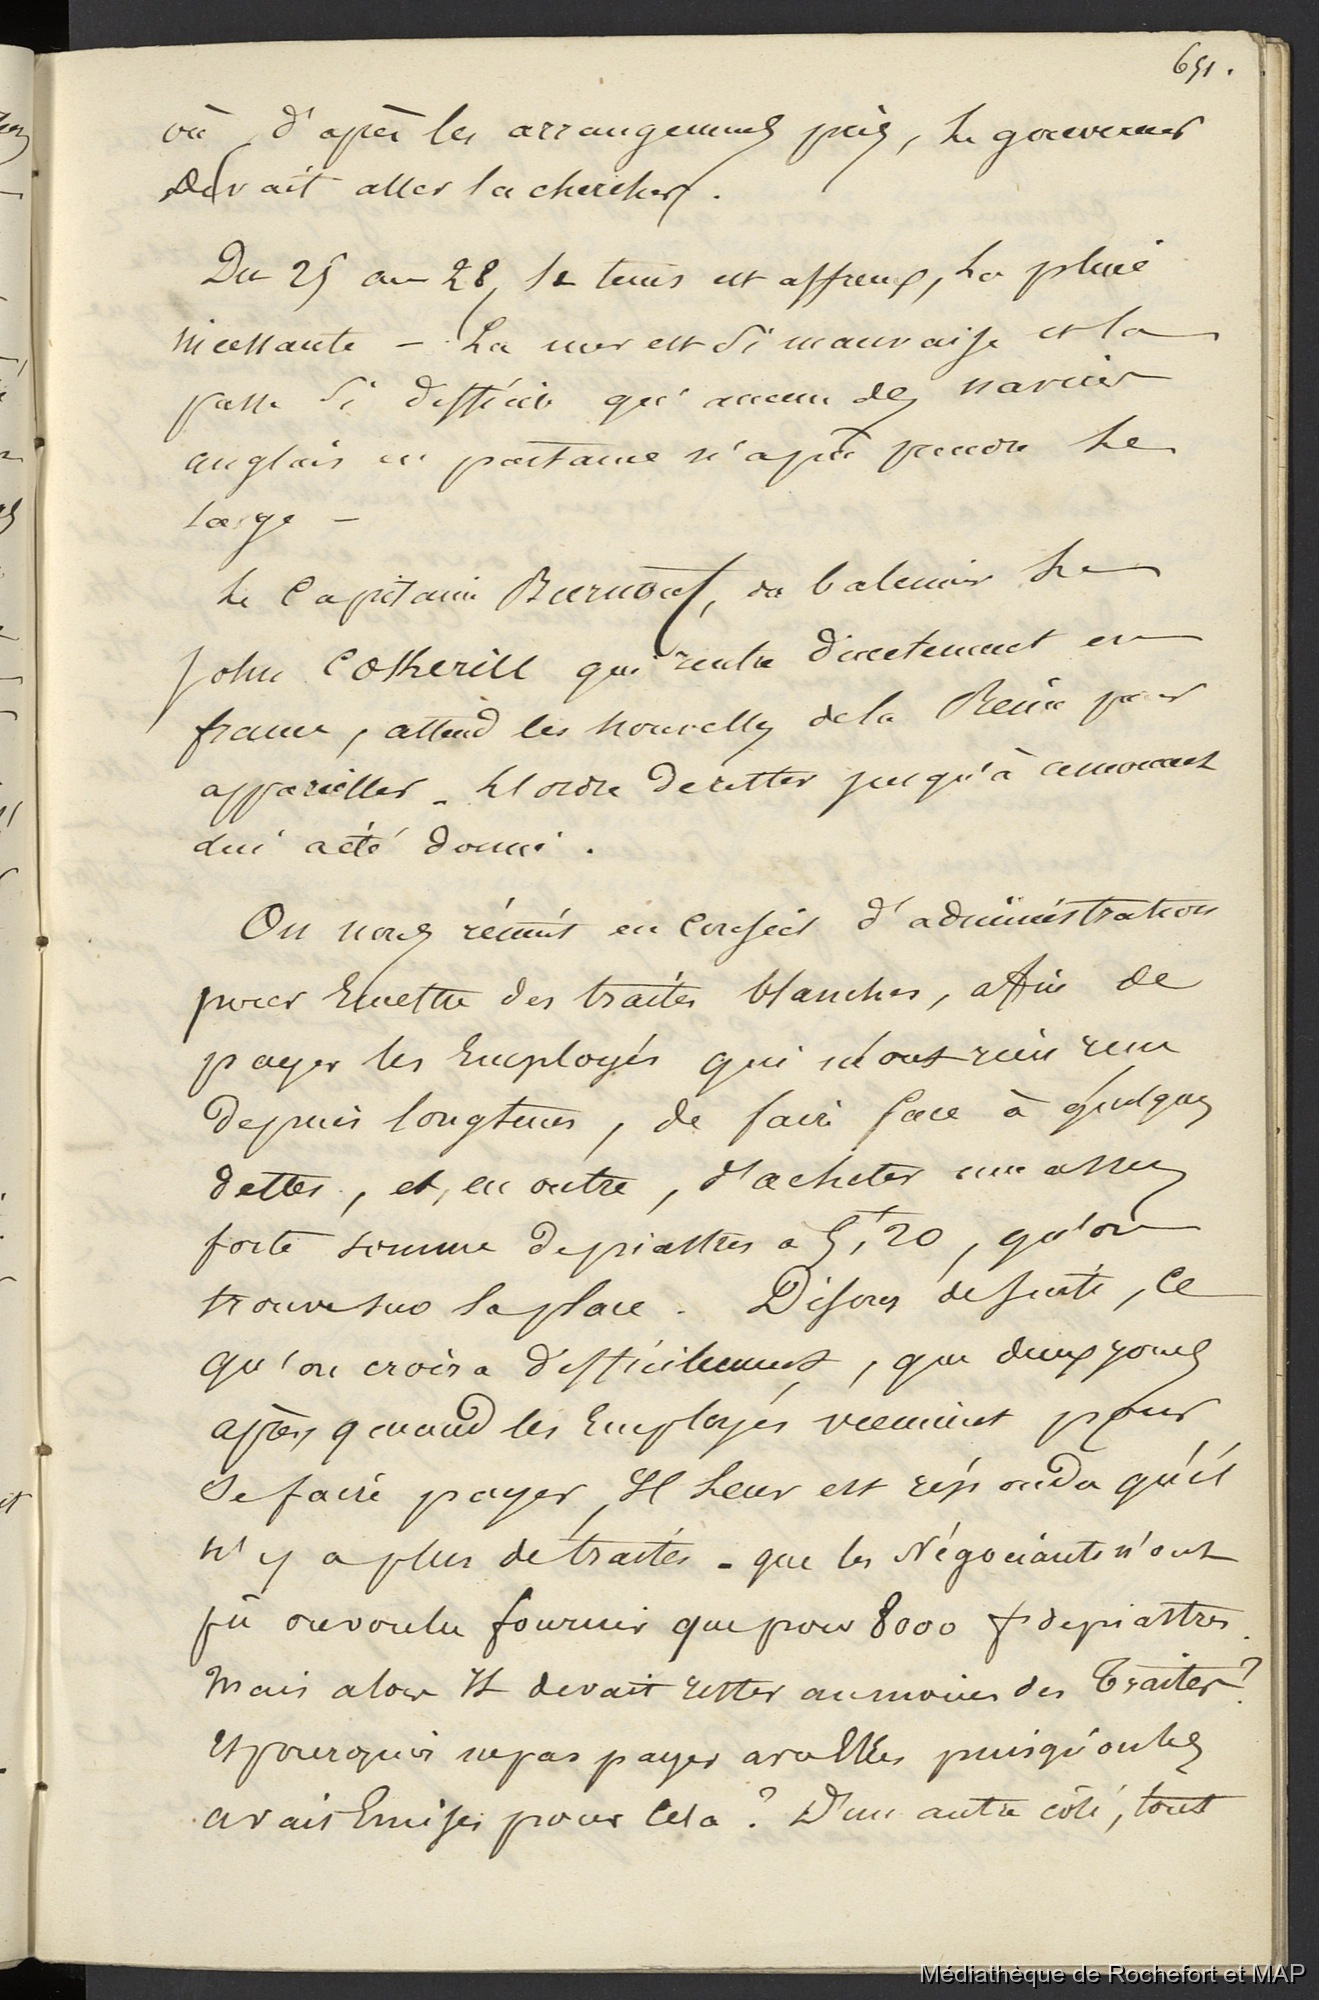 651.
où, d'après les arrangemens pris, le gouverneur
devait aller la chercher.
Du 25 au 28, le tems est affreux, la pluie
incessante - La mer est si mauvaise et la
passe si difficile qu'aucun des navires
anglais en partance n'a pû prendre le
large -
le Capitaine Burnouf, du baleinier le
John Cotherill qui rentre directement en
france, attend les nouvelles de la Reine pour
appareiller - Et ordre de rester jusqu'à ce moment
lui a été donné.
On nous réunit en Conseil d'administration
pour Emettre des traites blanches, affin de
payer les Employés qui n'ont rien reçu
depuis longtems, de faire face à quelques
dettes, et, en outre, d'acheter une assez
forte somme de piastres a 5,f20, qu'on
trouve sur la place. Disons de suite, ce
qu'on croira difficilement, que deux jours
après, quand les Employés viennent pour
se faire payer, Il leur est répondu qu'il
n'y a plus de traites - que les Négociants n'ont
pû ou voulu fournir que pour 8000 f de piastres.
Mais alors Il devait rester au moins des Traites?
Et pourquoi ne pas payer avec Elles puisqu'on les
avait Emises pour cela? D'un autre côté, tout
Médiathèque de Rochefort et MAP